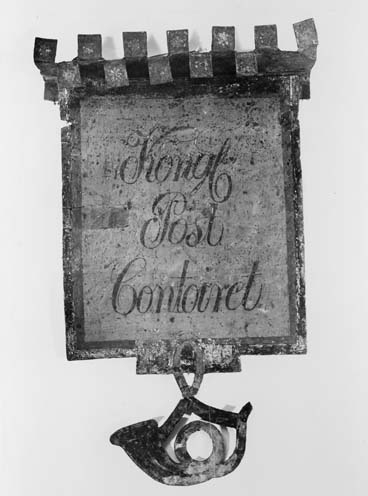 Kongl
Post
Contoiret